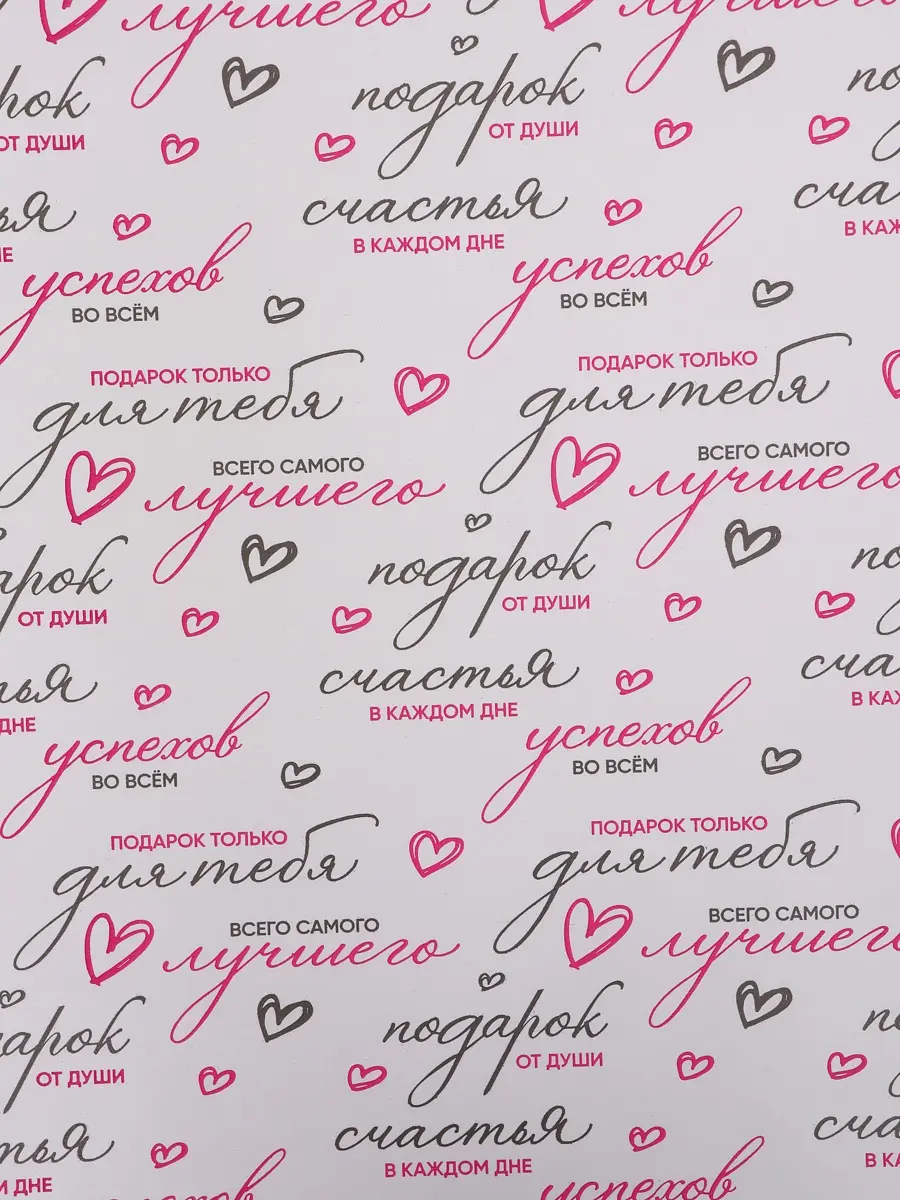 лучшего лучшего
подарок подарок по
ОТ ДУШИ ОТ ДУШИ
счастья сча
В КАЖДОМ ДНЕ В КАЖ
успехов успехов
ВО ВСЁМ ВО ВСЁМ
ПОДАРОК ТОЛЬКО ПОДАРОК ТОЛЬКО
для тебя для тебя
ВСЕГО САМОГО ВСЕГО САМОГО
лучшего лучшего
арок подарок по
ОТ ДУШИ ОТ ДУШИ
тья счастья сча
ДНЕ В КАЖДОМ ДНЕ В КАЖ
успехов успехов
ВО ВСЁМ ВО ВСЁМ
ПОДАРОК ТОЛЬКО ПОДАРОК ТОЛЬКО
для тебя для тебя
ВСЕГО САМОГО ВСЕГО САМОГО
лучшего лучшего
арок подарок п
ОТ ДУШИ ОТ ДУШИ
тья счастья сча
М ДНЕ В КАЖДОМ ДНЕ В К
успехов успехов